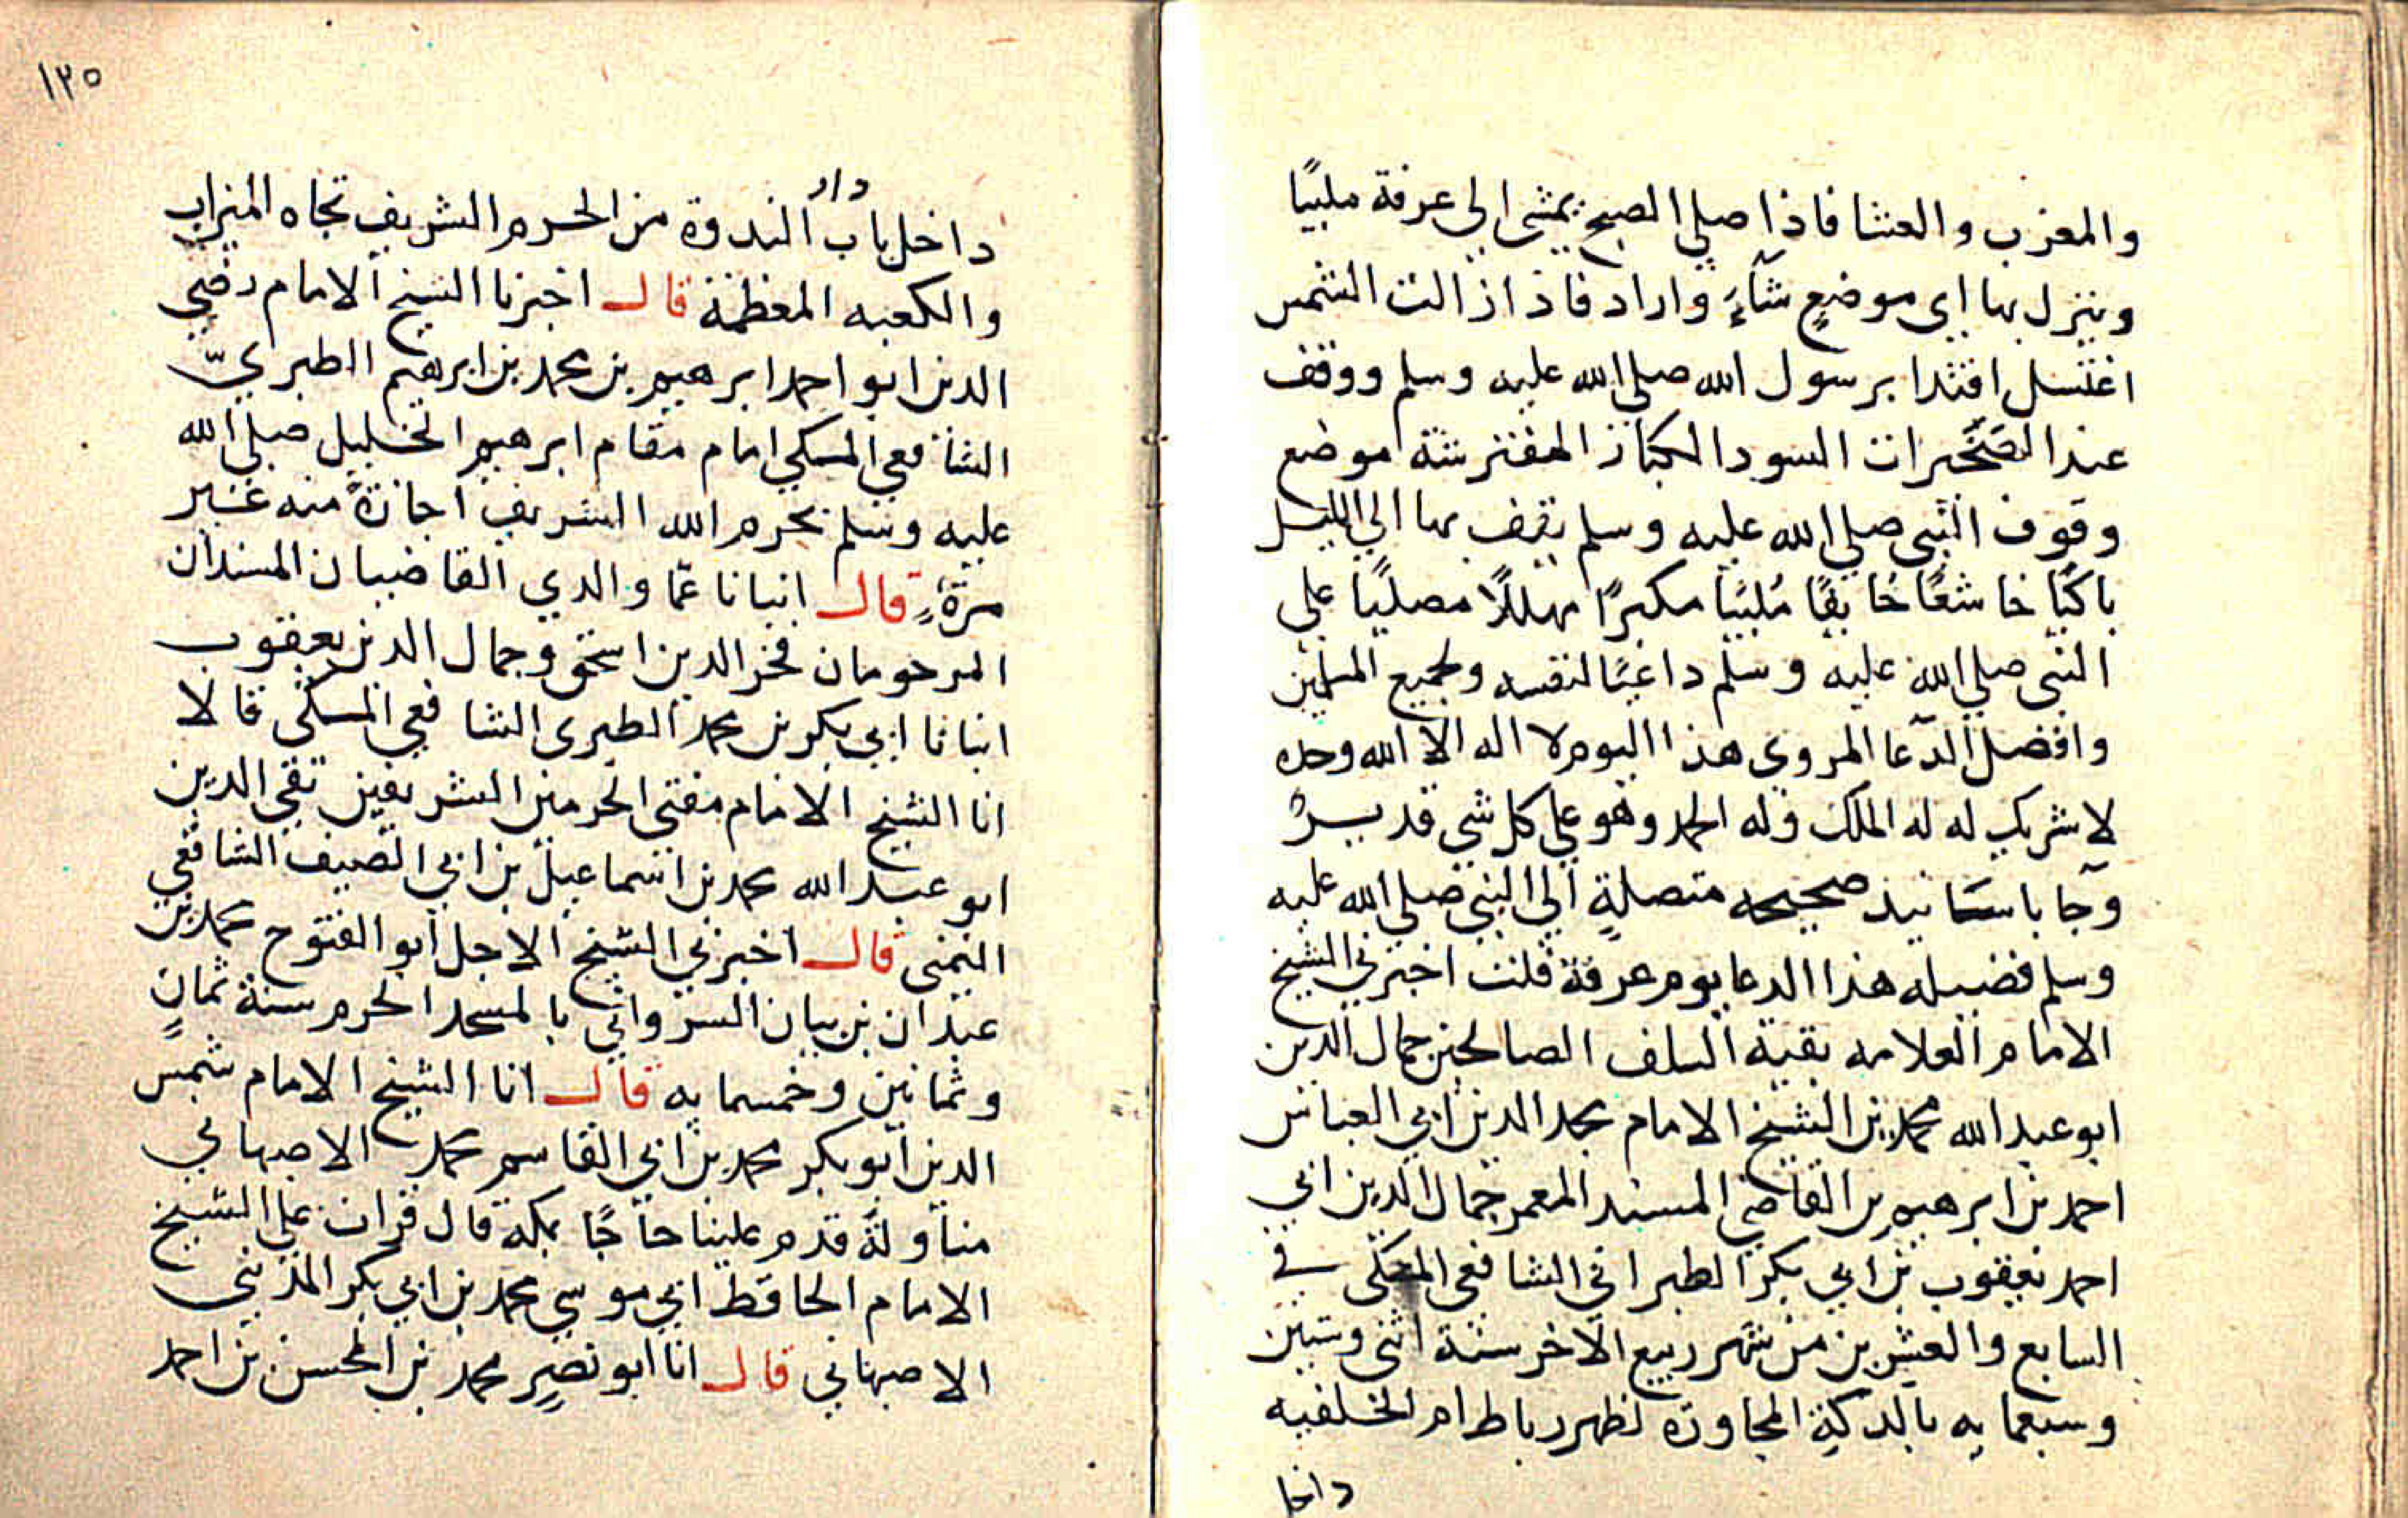 والمغرب والعشا فاذا صلى الصبح يمشى الى عرفة ملبيًا
وينزل بها اى موضعٍ شآءَ واراد فاذا زالت الشمس
اغتسل اقتدا برسول الله صلى الله عليه وسلم ووقف
عند الصخيرات السود الكبار المفترشة موضع
وقوف النبى صلى الله عليه وسلم يقف بها الى الليل
باكيًا خاشعًا خايفًا مُلبيًا مكبرًا مهللًا مصليًا على
النبى صلى الله عليه وسلم داعيًا لنفسه ولجميع المسلمين
وافضل الدّعا المروى هذا اليوم لا اله الا الله وحده
لا شريك له له الملك وله الحمد وهو على كل شى قديرٌ
وجا باسانيد صحيحه متصلةٍ الى النبى صلى الله عليه
وسلم فضيله هذا الدعا يوم عرفة قلت اخبرنى الشيخ
الامام العلامه بقية السلف الصالحين جمال الدين
ابو عبد الله محمد بن الشيخ الامام مجد الدين ابي العباس
احمد بن ابرهيم بن القاضى المسند المعمر جمال الدين ابي
احمد يعقوب بن ابي بكر الطبرانى الشافعى المكى فى
السابع والعشرين من شهر ربيع الاخر سنة اثنى وستين
وسبعمايه بالدكةِ المجاورة لظهر رباط ام الخلفيه
داخل
١٣٥
داخل باب دار الندوة من الحرم الشريف تجاه الميزاب
والكعبه المعظمة قال اخبرنا الشيخ الامام رضي
الدين ابو احمد ابرهيم بن محمد بن ابرهيم الطبريّ
الشافعي المكي امام مقام ابرهيم الخليل صلى الله
عليه وسلم بحرم الله الشريف اجازةً منه غير
مرّةٍ قال انبانا عمّا والدي القاضيان المسندان
المرحومان فخر الدين اسحق وجمال الدين يعقوب
انبانا ابي بكر بن محمد الطبرى الشافعي المكى قالا
انا الشيخ الامام مفتى الحرمين الشريفين تقي الدين
ابو عبد الله محمد بن اسماعيل بن ابي الصيف الشافعي
اليمنى قال اخبرني الشيخ الاجل ابو الفتوح محمد بن
عبدان بن بيان السرواني بالمسجد الحرم سنة ثمانٍ
وثمانين وخمسمايه قال انا الشيخ الامام شمس
الدين ابو بكر محمد بن ابي القاسم محمد الاصبهاني
مناولةً قدم علينا حاجًا بمكة قال قرات على الشيخ
الامام الحافظ ابي موسي محمد بن ابي بكر المدينى
الاصبهاني قال انا ابو نصرٍ محمد بن المحسن بن احمد